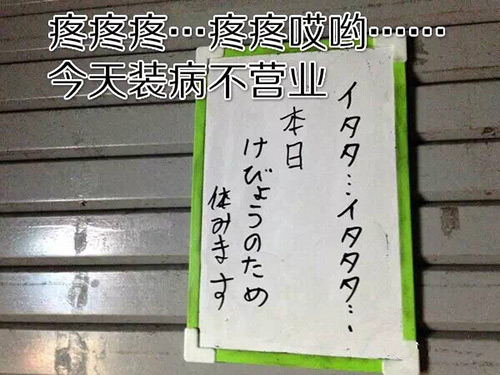 疼疼疼…疼疼哎哟……
今天装病不营业
イタタ…イタタタ…
本日
けびょうのため
休みます